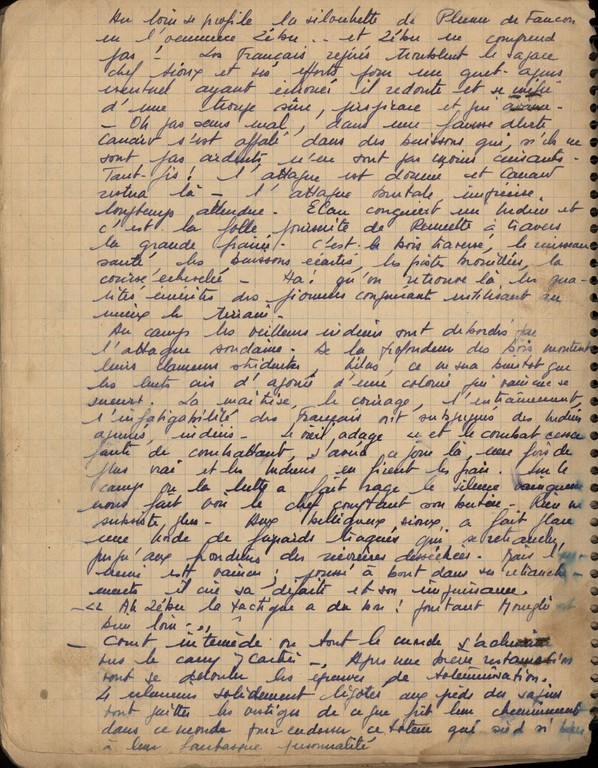 Au loin se profile la silouhette de Plume de Faucon
en l'occurrence Zébu... et Zébu ne comprend
pas! Les Français rejoins troublent le sagace
chef sioux et ses efforts pour un guet-apens
éventuel ayant échoués il redoute et se méfie
d'une troupe sûre, perspicace et qui
- Oh pas sans mal, dans une fausse alerte
s'est affalé dans des buissons qui, s'ils ne
sont pas ardents n'en sont pas moins cuisants -
Tant-pis! l'attaque est donnée et
restera là - l'attaque brutale imprécise,
longtemps attendue. Elan conquiert un Indien et
c'est la folle poursuite de Rainette à travers
la grande prairie - c'est le bois traversé, le ruisseau
sauté, les buissons écartés, les pistes brouillées, la
course échevelée - Ha! qu'on retrouve là les qua-
lités innées des pionniers conquérant utilisant au
mieux le terrain -
Au camp les veilleurs indiens sont débordés par
l'attaque soudaine. De la profondeur des bois montent
leurs clameurs stridentes, hélas, ce ne sera bientôt que
les lents cris d'agonie d'une colonie qui vaincue se
meurt. La maîtrise, le courage, l'entraînement
l'infatigabilité des Français ont subjugués des Indiens
aguerris, indécis - le vieil adage « et le combat cessa
faute de combattant, s'avère à foris là, une fois de
plus vrai et les Indiens en firent les frais. Sur le
camp où la lutte a fait rage le silence vainqueur
nous fait voir le chef comptant son butin. Rien ne
subsiste plus - Aux belliqueux sioux, a fait place
une horde de fuyards traqués qui se retranche
jusqu'aux frondeurs des rivières desséchées. Mais l'en-
nemi est vaincu; poussé à bout dans ses retranche-
ments il crie sa défaite et son impuissance.
- << Ah Zébu la tactique a du bon! pourtant Mowgli est
bien loin - >>
- Court intermède où tout le monde
sur le camp 7 Cartier -, Après une brève restauration
vont se dérouler les épreuves de totémisation.
Ces visiteurs solidement ligotés aux pieds du sapin
vont quitter les vestiges de ce que fût leur cheminement
dans ce monde pour endosser ce totem qui sied si bien
à leur fantasque personnalité